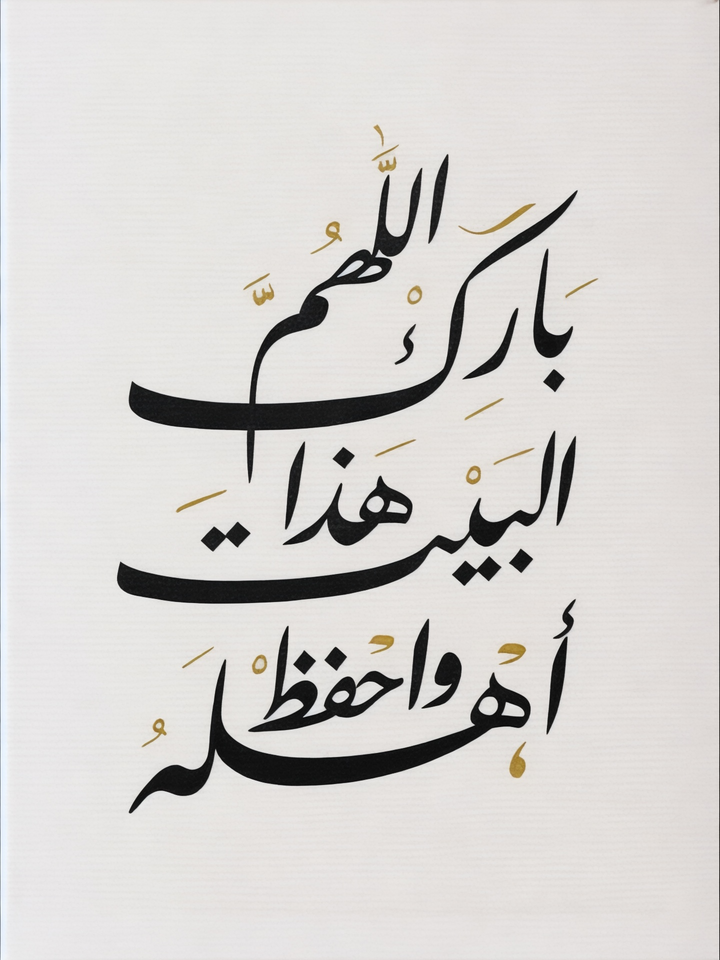 اللَّهُمَّ بَارِكْ
هَذَا البَيْتَ
واحفظْ أهْلَهُ